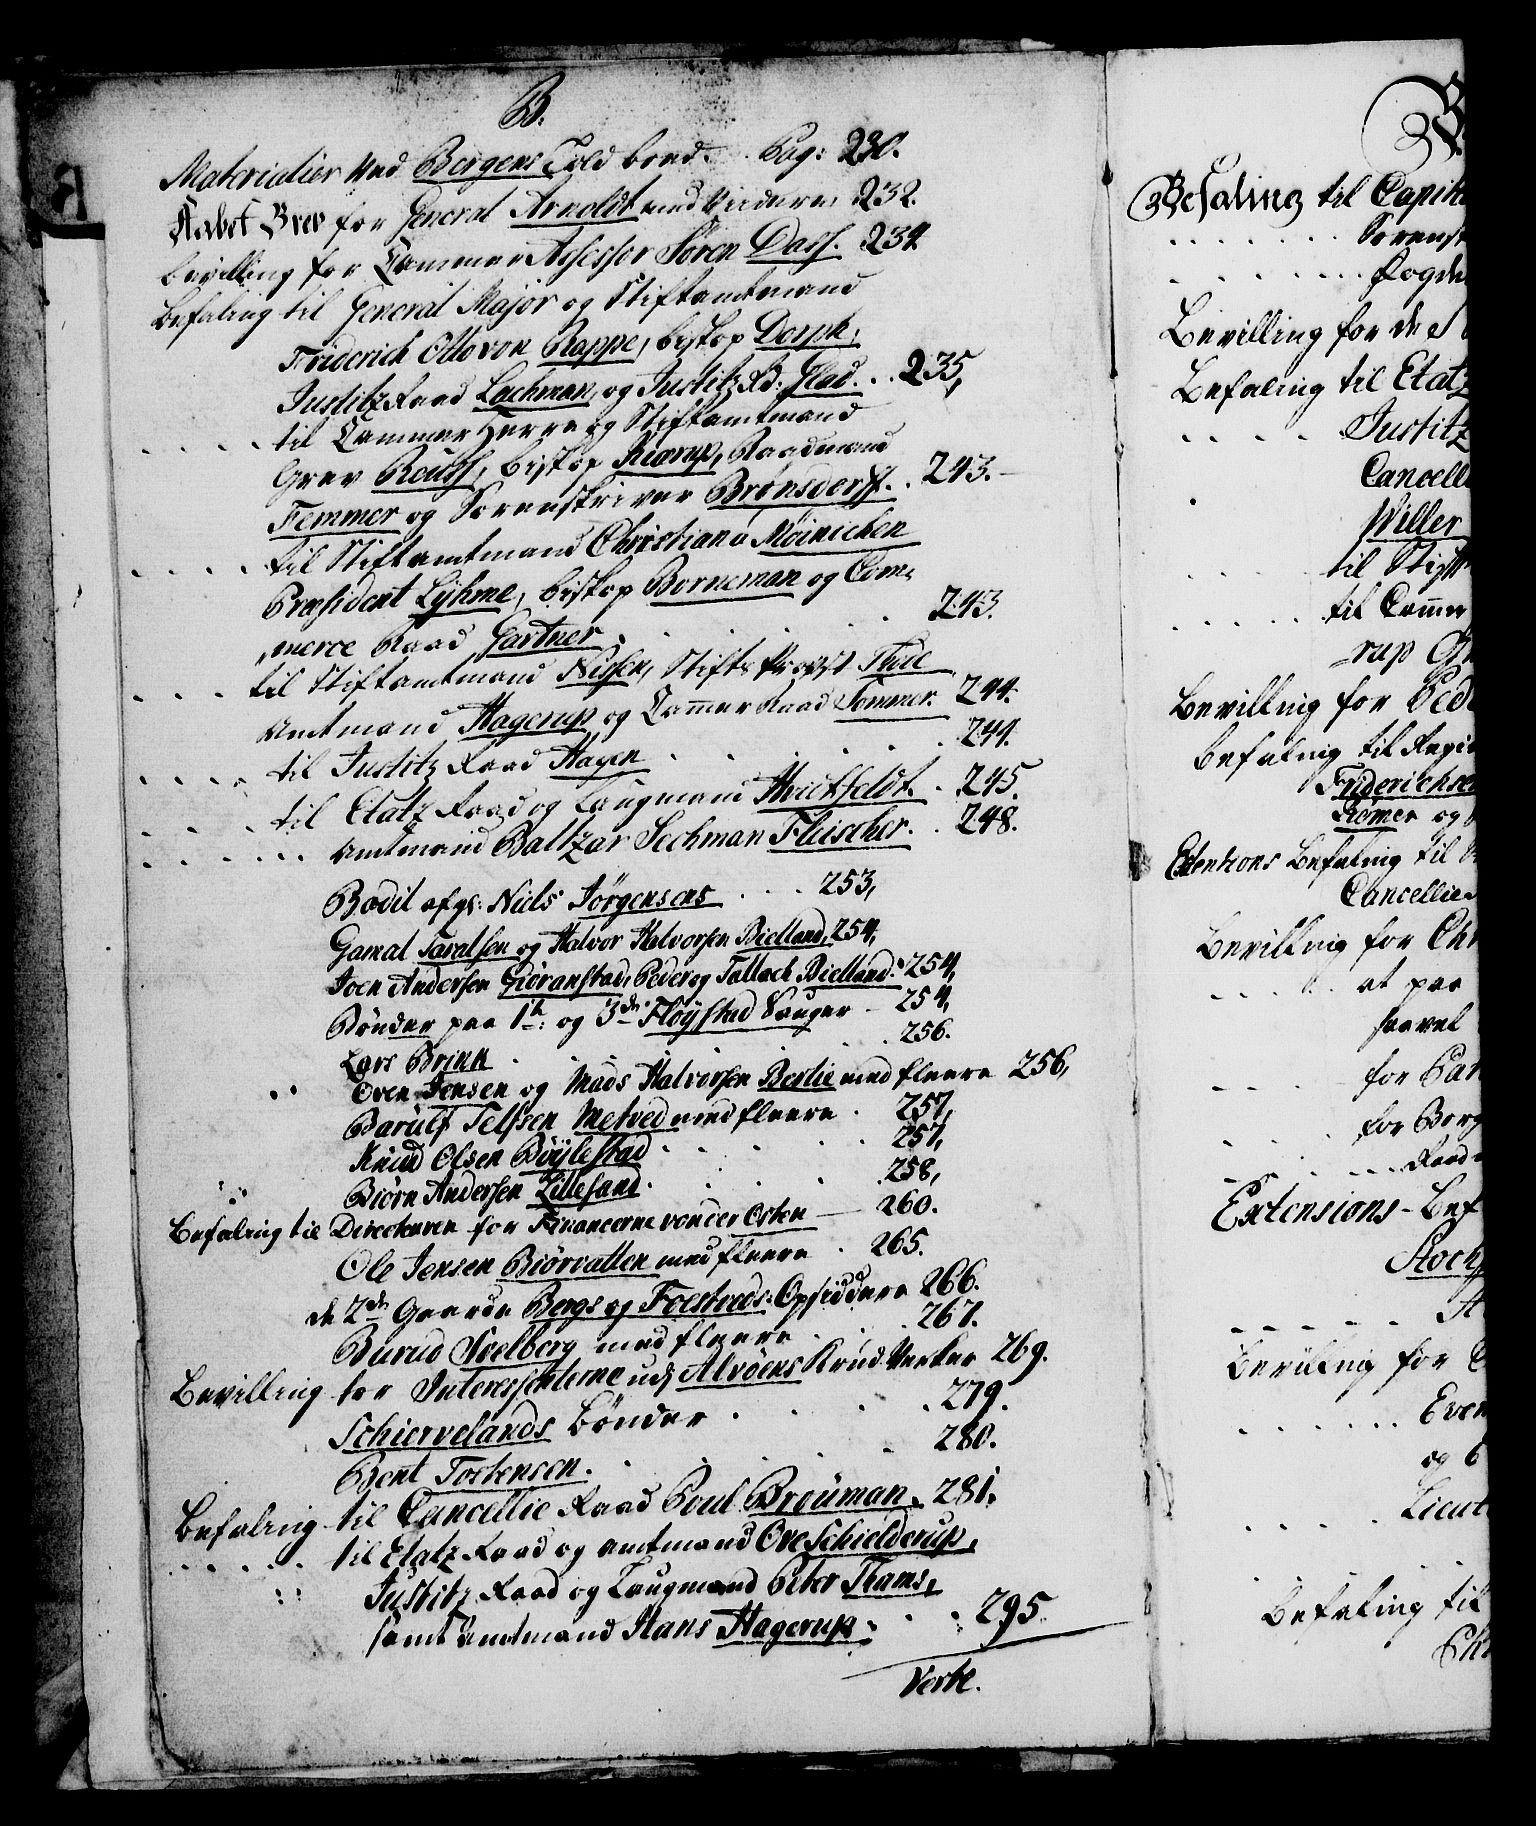 B.
Materialier ved Bergens Told bod. . Pag: 230.
Aabet Brev for General Arnoldt med videre 232.
bevilling for Cammer Assessor Søren Dass. 234
Befaling til General Major og Stiftamtmand
Friderich Otto von Rappe, biskop Dorph,
Justitz Raad Lachman, og Justitz Rd: Glad. . . 235,
. . . . . til Cammer Herre og Stiftamtmand
Grev Reuss, biskop Kiærup, Raadmand
Femmer og Sorenskriver Brønsdorff. . 243.
. . . . til Stiftamtmand Christian a Møinichen
Præsident Lyhme, biskop Borneman og Com-
merce Raad Gartner . . . . . . 243.
. . . . til Stiftamtmand Nissen, Stifts Provst Thode
Amtmand Hagerup og Cammer Raad Sommer. 244.
. . . . til Justitz Raad Hagen . . . . . . 244.
. . . . til Etatz Raad og Laugmand Hvitfeldt. . 245.
. . . . . . Amtmand Baltzar Sechman Fleischer. . 248.
Bodil afgl: Niels Jørgensens . . . 253,
Gamal Taralsen og Halvor Halvorsen Bielland, 254,
Joen Andersen Giøranstad, Peder og Tallach Bielland: 254,
Bønder paa 1te: og 3de Fløystad Sauger - 254,
Lars Brink . . . . . . 256.
. . Even Jensen og Mads Halvorsen Berlie med fleere 256,
Barulf Telfsen Metved med fleere . 257,
Knud Olsen Bøylestad . . . . . 257,
Biørn Andersen Lillesand . . . . . 258,
Befaling til Directeuren for Financerne von der Osten - 260.
Ole Jensen Biørvatten med fleere . 265.
de 2de Gaarde Bergs og Foestveds: Opsiddere 266.
Burud Svelberg med fleere . . . 267.
Bevilling for Interessenterne udj Alvøens Krud Verker 269.
Schiervelands bønder . . . . 279.
Bent Torstensen. . . . . . 280.
Befaling til Cancellie Raad Poul Brouman. 281.
. . . . . til Etatz Raad og Amtmand Ove Schielderup,
Justitz Raad og Laugmand Peter Thams,
samt Amtmand Hans Hagerup . . . 295.
Verte.
B
Befaling til Capit
. . . . . . . Sorens
. . . . . . . . Fogde
Bevilling for de
Befaling til Etatz
. . . . . Justitz
Cancell
Willer
. . . . . til Stift
. . . . . til Cammer
rup
Bevilling for Ped
befaling til
Friderichsen
Rømer og
Extentions befaling til
Cancellie
Bevilling for Chr
. . . . . at paa
saavel
. . . for
. . . . for Borg
. . . . . . . Raad
Extensions - Bef
Stock
. . . . . .
Bevilling for
. . . . . . Even
og
. . . . . Lieut
Befaling til
Chr